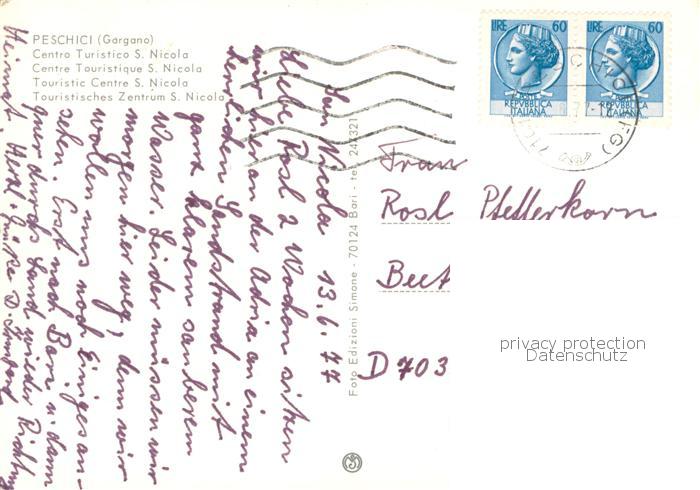 PESCHICI (Gargano)
Centro Turistico S. Nicola
Centre Touristique S. Nicola
Touristic Centre S. Nicola
Touristisches Zentrum S. Nicola
LIRE 60
REPVBBLICA
ITALIANA
LIRE 60
REPVBBLICA
ITALIANA
San Nicola 13.6.77
Liebe Rosl 2 Wochen sitzen
wir schon an der Adria an einem
herrlichen Sandstrand mit
ganz klarem sauberem
Wasser. Leider müssen wir
morgen hier weg, denn wir
wollen uns noch Einiges an-
sehen. Erst nach Bari u. dann
quer durchs Land wieder Richtung
Heimat. Herzl. Grüße D.
Foto Edizioni Simone - 70124 Bari - tel. 242321
Frau
Rosl Pfefferkorn
Beet
D 703
privacy protection
Datenschutz